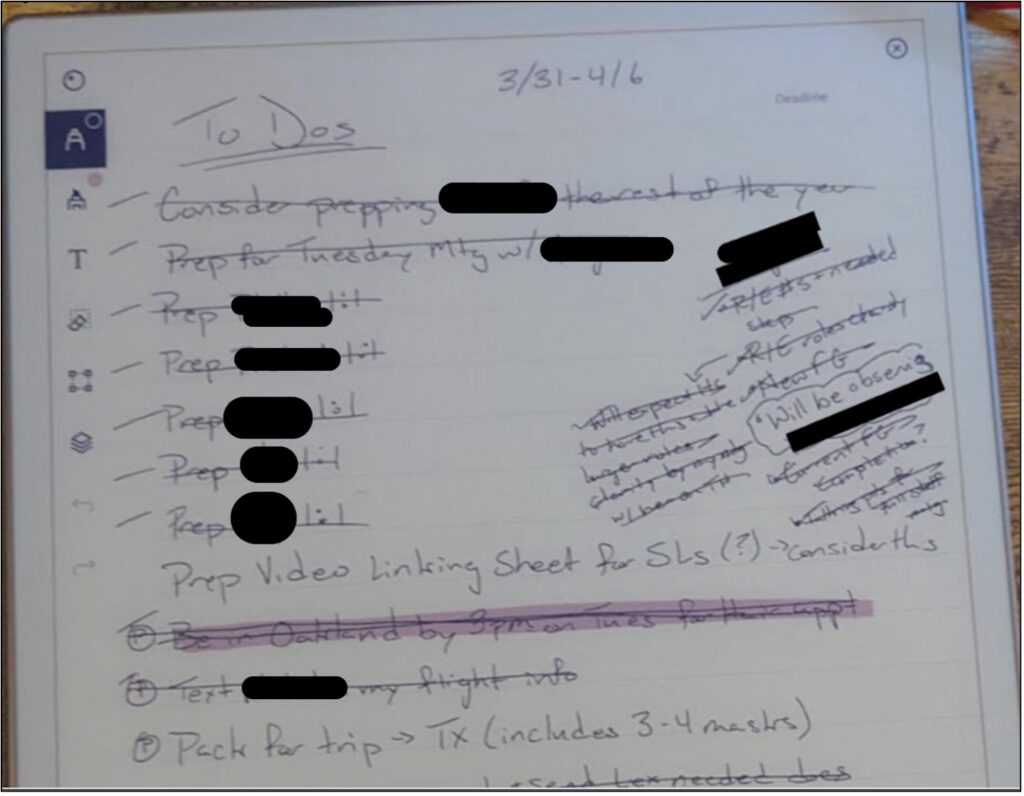 3/31-4/6
Deadline
To Dos
A
T
Consider prepping the rest of the year
Prep for Tuesday Mtg w/
Prep 1:1
Prep 1:1
Prep 1:1
Prep 1:1
Prep 1:1
R/E #s + needed
steps
R/E roles clarity
New FG
Will expect its
to have this be
larger roles
clarity by my
"Will be observing
Current FG
Completion?
full staff
mtg
Prep Video Linking Sheet for SLs (?) → consider this
P Be in Oakland by 3pm on Tues for Hair appt
P Text my flight info
P Pack for trip → TX (includes 3-4 masks)
needed does